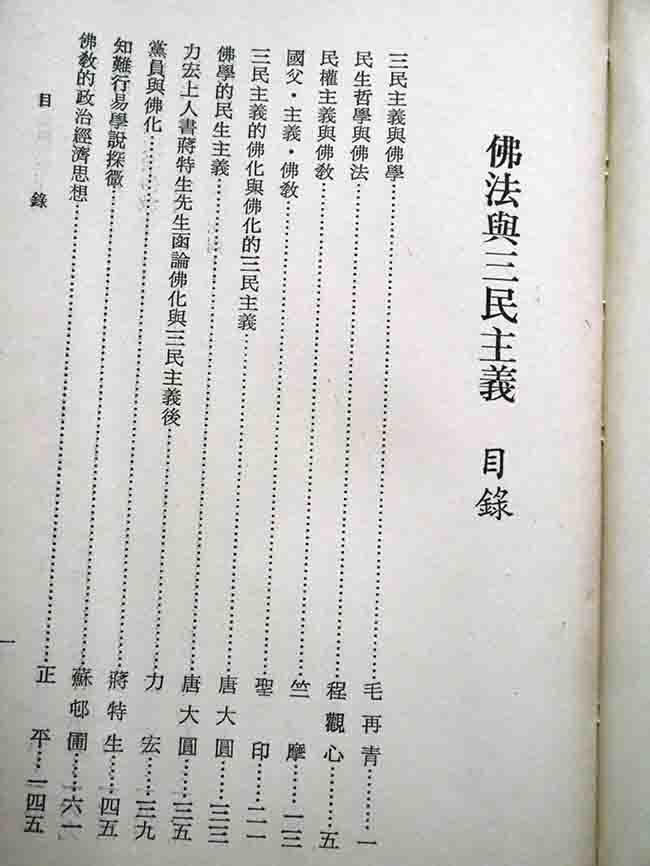 佛法與三民主義 目錄
三民主義與佛學……毛再青……一
民生哲學與佛法……程觀心……五
民權主義與佛教……竺摩……一三
國父・主義・佛教……聖印……二一
三民主義的佛化與佛化的三民主義……唐大圓……三三
佛學的民生主義……唐大圓……三五
力宏上人書蔣特生先生函論佛化與三民主義後……力宏……三九
黨員與佛化……蔣特生……四五
知難行易學說探微……蘇邨圃……六一
佛教的政治經濟思想……正平……一四五
目錄
一